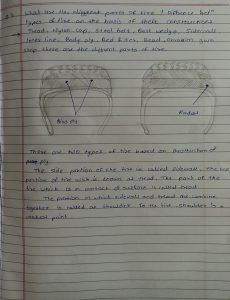 What are the different parts of tire ? Differen bet"
types of tire on the basis of their construction
Tread, Nylon Cap, Steel belt, Belt wedge, Sidewall
Inner line, Body ply, Bead filler, Bead,
these are the different parts of tire.
Bias ply
Radial
These are two types of tire based on construction of
ply
The side portion of the tire is called sidewall. The
portion of tire which is known as tread. The part of the
tire which is in contact of surface is called tread.
The portion in which sidewall and tread are
together is called as shoulder. In the tire, shoulder is a
point